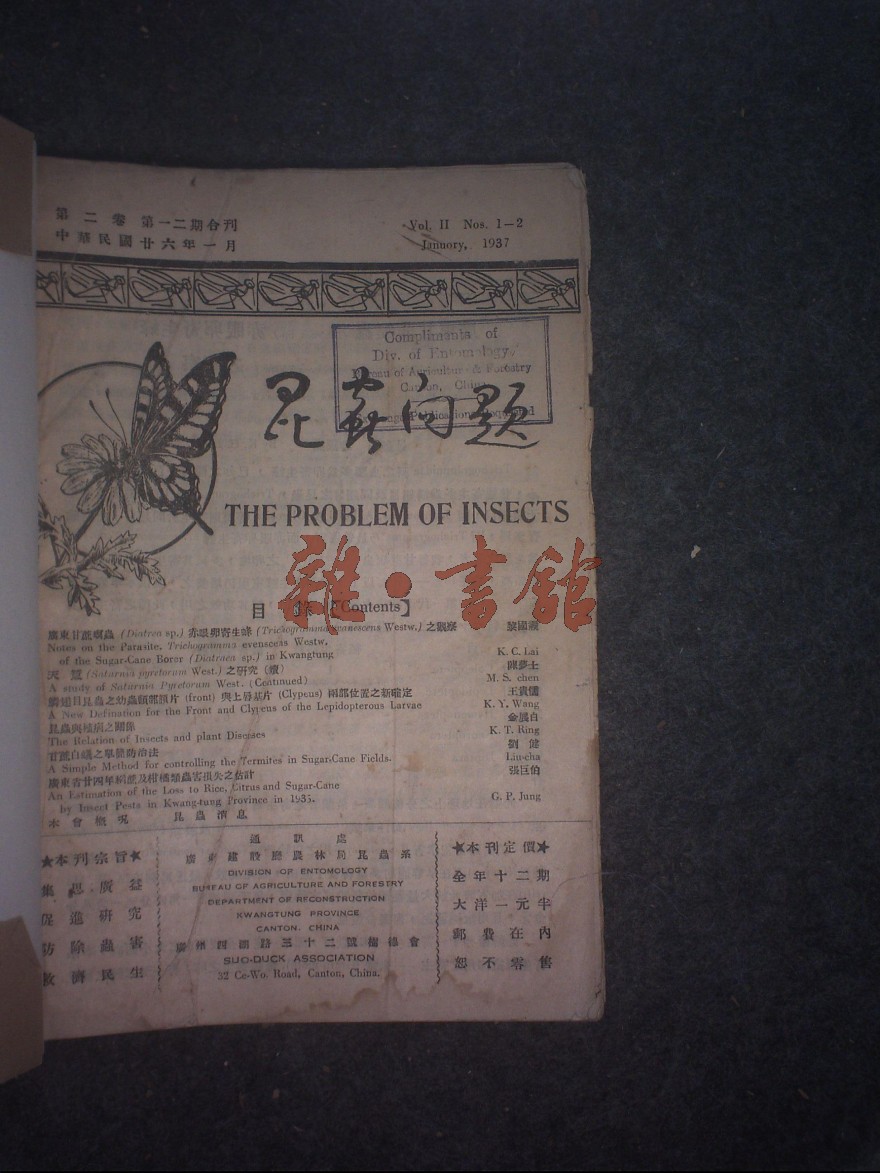 第二卷 第一二期合刊
中華民國廿六年一月
Vol. II Nos. 1—2
Jannory, 1937
Compliments of
Div. of Entomology,
Bureau of Agriculture & Forestry
Canton, China
昆蟲问题
THE PROBLEM OF INSECTS
雜·書館
目錄【Contents】
廣東甘蔗螟蟲 (Diatrea sp.) 赤眼卵寄生蜂 (Trichogramma evanescens Westw.) 之觀察 黎國燾
Notes on the Parasite. Trichogramma evenscens Westw.
of the Sugar-Cane Boror (Diatraea sp.) in Kwangtung K. C. Lai
天蠶 (Saturnia pyretorum West.) 之研究(續) 陳夢士
A study of Saturnia Pyretorum West. (Continued) M. S. chen
鱗翅目昆蟲之幼蟲頭部額片 (front) 與上唇基片 (Clypeus) 兩部位置之新確定 王貴儒
A New Defination for the Front and Clypeus of the Lepidopterous Larvae K. Y. Wang
昆蟲與植病之關係 金孟肖
The Relation of Insects and plant Diseases K. T. Ring
甘蔗白蟻之單簡防治法 劉健
A Simple Method for controlling the Termites in Sugar-Cane Fields. Liu-cha
廣東省廿四年稻蔗及柑橘類蟲害損失之估計 張巨伯
An Estimation of the Loss to Rice, Citrus and Sugar-Cane
by Insect Pests in Kwang-tung Province in 1935. G. P. Jung
本會概況 昆蟲消息
★本刊宗旨★
集思廣益
促進研究
防除蟲害
救濟民生
通訊處
廣東建設廳農林局昆蟲系
DIVISION OF ENTOMOLOGY
BUREAU OF AGRICULTURE AND FORESTRY
DEPARTMENT OF RECONSTRUCTION
KWANGTUNG PROVINCE
CANTON, CHINA
廣州四國路三十二號樹德會
SUO-DUCK ASSOCIATION
32 Ce-Wo. Road, Canton, China.
★本刊定價★
全年十二期
大洋一元半
郵費在內
恕不零售